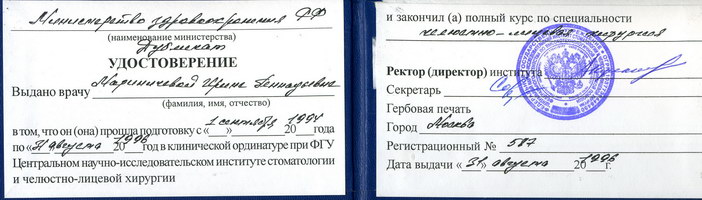 Министерство здравоохранения РФ
(наименование министерства)
Дубликат
УДОСТОВЕРЕНИЕ
Выдано врачу Мариничевой Ирине Геннадьевне
(фамилия, имя, отчество)
в том, что он (она) прошла подготовку с «1 сентября 1994 года
по «31 августа 1996 год в клинической ординатуре при ФГУ
Центральном научно-исследовательском институте стоматологии
и челюстно-лицевой хирургии
и закончил (а) полный курс по специальности
челюстно-лицевая хирургия
Ректор (директор) института
Секретарь
Гербовая печать
Город Москва
Регистрационный № 587
Дата выдачи «31» августа 1996 г.